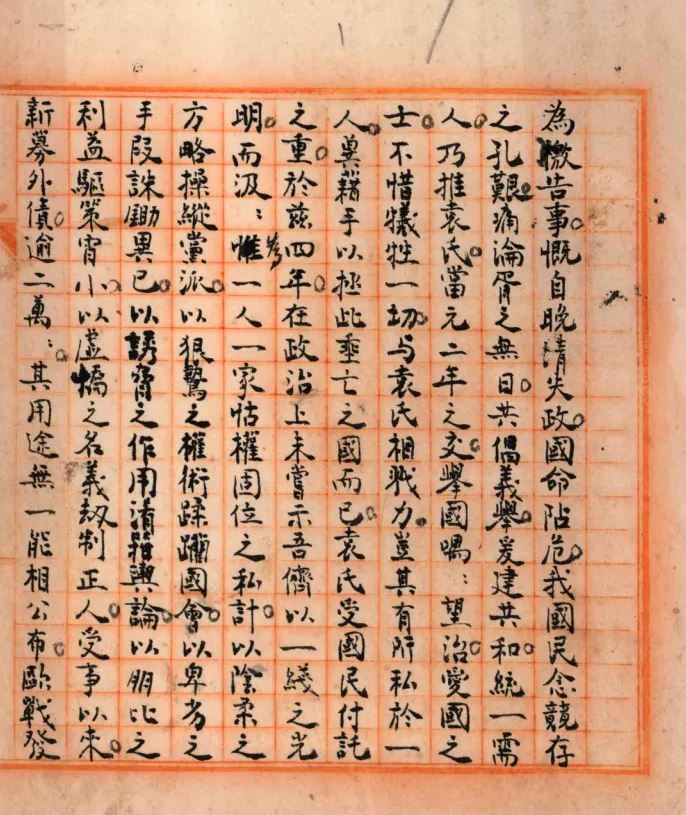 為檄告事。慨自晚清失政。國命阽危。我國民念競存
之孔艱。痛淪胥之無日。共倡義舉。爰建共和。統一需
人。乃推袁氏。當元二年之交。舉國喁〻望治。愛國之
士。不惜犧牲一切。与袁氏相戮力。豈其有所私於一
人。冀藉手以拯此垂亡之國而已。袁氏受國民付託
之重。於茲四年。在政治上未嘗示吾儕以一綫之光
明。而汲〻惟為一人一家怙權固位之私計。以陰柔之
方略操縱黨派。以狠鷙之權術蹂躪國會。以卑劣之
手段誅鋤異己。以誘脅之作用淆箝輿論。以朋比之
利益驅策宵小。以虛憍之名義劫制正人。受事以來。
新募外債逾二萬〻。其用途無一能相公布。歐戰發